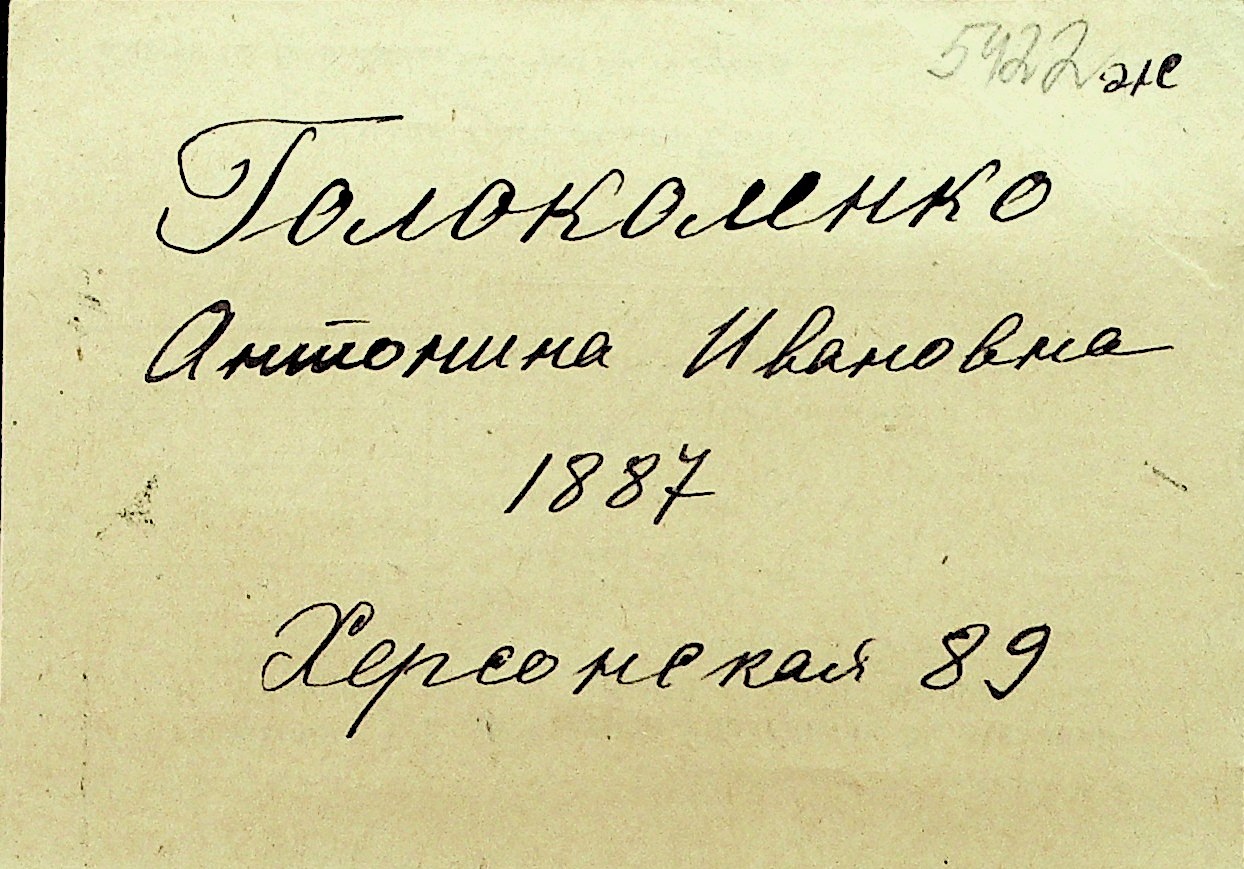 5422 ж
Голоколенко
Антонина Ивановна
1887
Херсонская 89